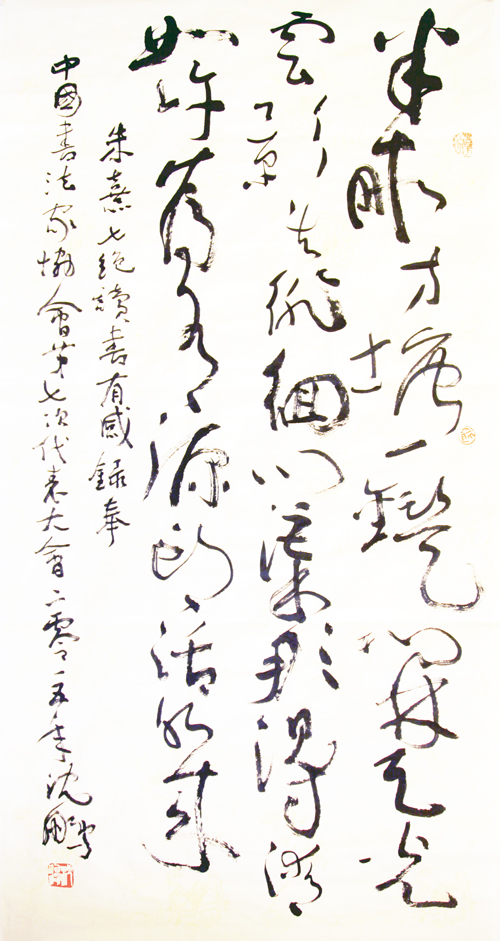 半畝方塘一鑑開天光
雲影共徘徊問渠那得清
如許為有源頭活水來
朱熹七絕讀書有感録奉
中國書法家協會第七次代表大會二零一五年沈鵬